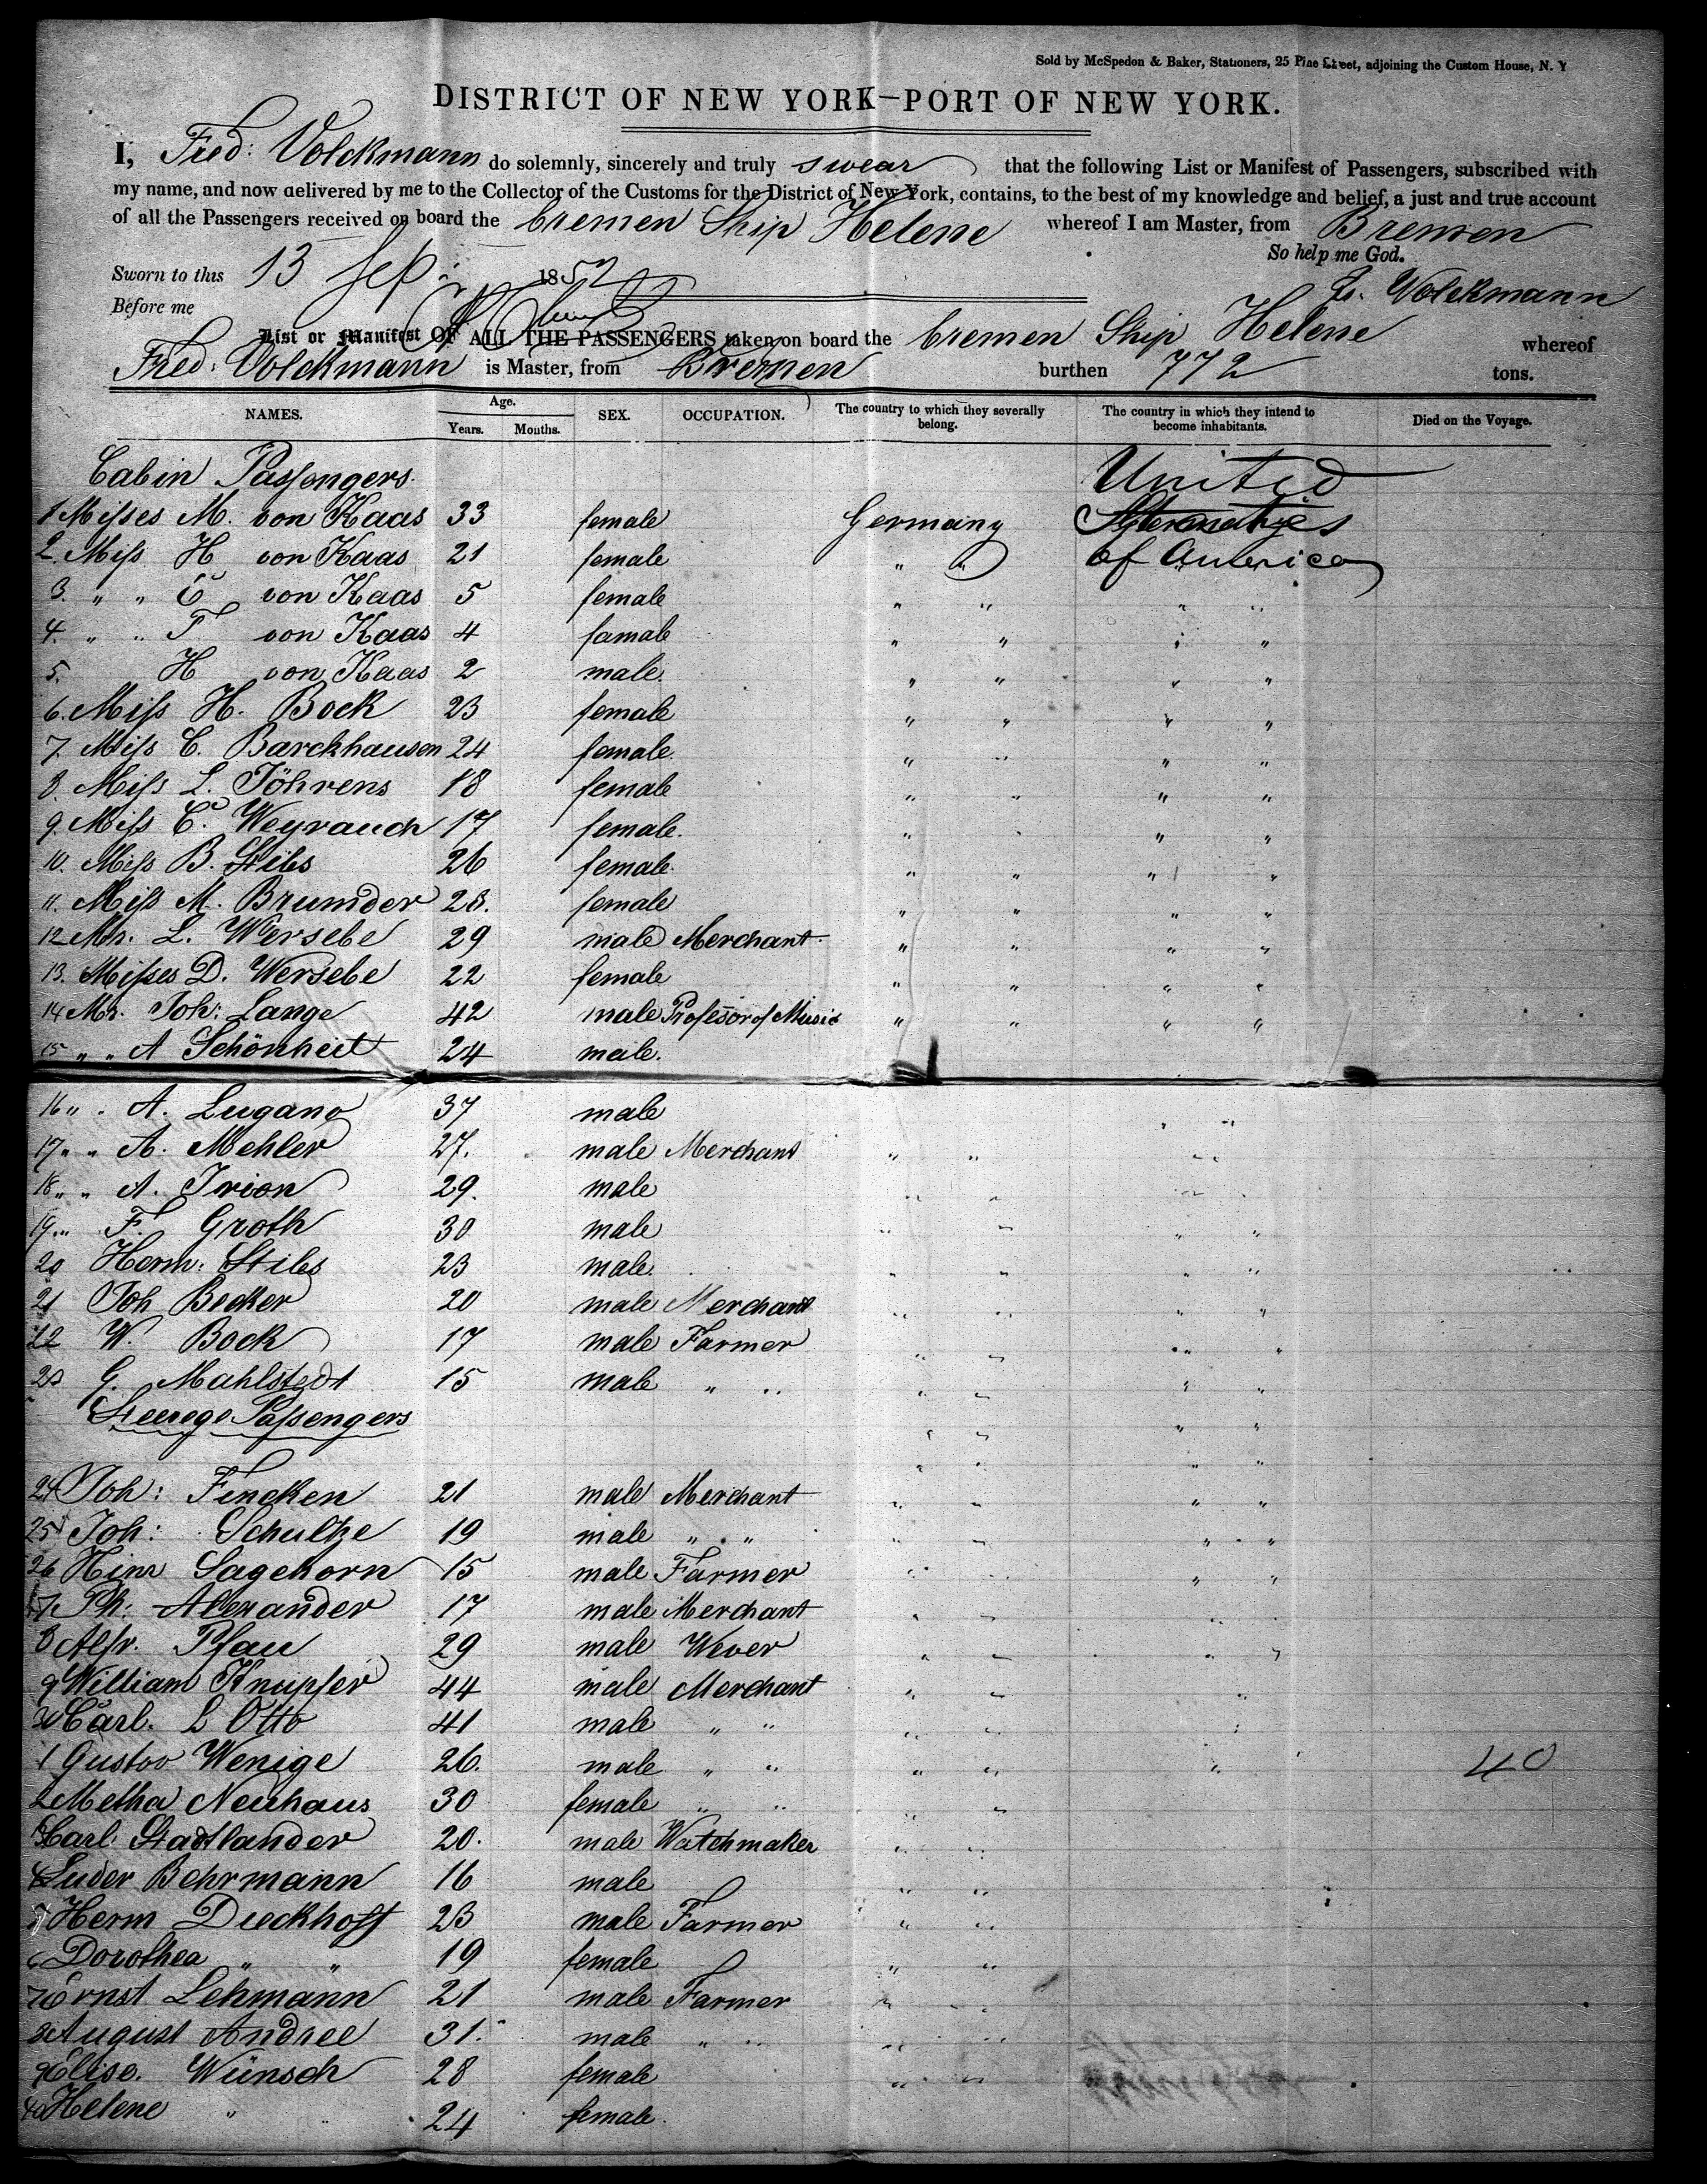 Sold by McSpedon & Baker, Stationers, 25 Pine Street, adjoining the Custom House, N. Y
DISTRICT OF NEW YORK—PORT OF NEW YORK.
I, Fred: Volckmann do solemnly, sincerely and truly swear that the following List or Manifest of Passengers, subscribed with
my name, and now delivered by me to the Collector of the Customs for the District of New York, contains, to the best of my knowledge and belief, a just and true account
of all the Passengers received on board the bremen Ship Helene whereof I am Master, from Bremen
So help me God.
Sworn to this 13 Sep 1852
Fr. Volckmann
Before me
List or Manifest OF ALL THE PASSENGERS taken on board the bremen Ship Helene whereof
Fred: Volckmann is Master, from Bremen burthen 772 tons.
NAMES. Age. Years. Months. SEX. OCCUPATION. The country to which they severally belong. The country in which they intend to become inhabitants. Died on the Voyage.
Cabin Passengers. United
1 Misses M. von Kaas 33 female Germany States
2. Miss H von Kaas 21 female " " of America
3. " " C von Kaas 5 female " " " "
4. " " F von Kaas 4 famale " " " "
5. H von Kaas 2 male. " " " "
6. Miss H. Bock 23 female " " " "
7. Miss C. Barckhausen 24 female. " " " "
8. Miss L. Töhrens 18 female " " " "
9. Miss C. Weyrauch 17 female. " " " "
10. Miss B. Stiles 26 female. " " " "
11. Miss M. Brumder 28. female " " " "
12 Mr. L. Wersebe 29 male Merchant. " " " "
13. Misses D. Wersebe 22 female " " " "
14 Mr. Joh: Lange 42 male Profesor of Music " " " "
15 " " A Schönheit 24 male.
16 " " A. Lugano 37 male " "
17 " " A. Mehler 27. male Merchant " " " "
18 " " A. Irion 29. male " " " "
19 " " F. Groth 30 male " " " "
20 Herm: Stiles 23 male. " " " "
21 Joh Becker 20 male Merchant " " " "
22 W. Bock 17 male Farmer " " " "
23 G. Mahlstedt 15 male " " " " " "
Steerege Passengers " " " "
24 Joh: Fincken 21 male Merchant " " " "
25 Joh: Schultze 19 male " " " " " "
26 Hinr Sagehorn 15 male Farmer " " " "
27 Ph: Alexander 17 male Merchant " " "
8 Alfr. Pfau 29 male Wever " " " "
9 William Knupfer 44 male Merchant " " "
30 Carl. L Otto 41 male " " " " "
1 Gustav Wenige 26. male " " " " " 40
2 Metha Neuhaus 30 female " " " "
3 Carl. Stadtlander 20. male Watchmaker " "
4 Luder Behrmann 16 male " "
5 Herm Dieckhoff 23 male Farmer " "
6 Dorothea " " 19 female " "
7 Ernst Lehmann 21 male Farmer " "
8 August Andree 31. male " " " "
9 Elise. Wünsch 28 female " "
40 Helene " 24 female.